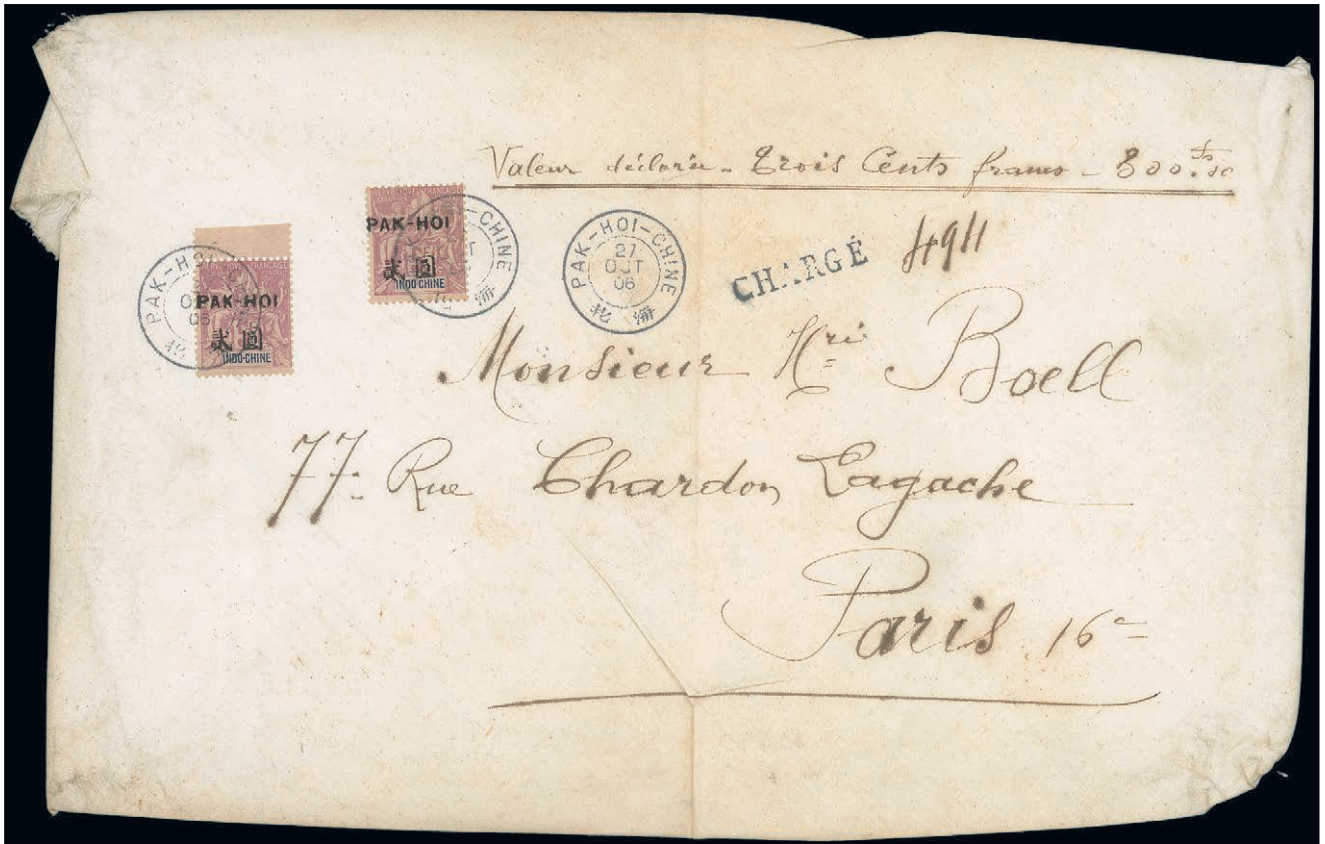 Valeur déclarée - Trois Cents francs - 300 fs. 00
PAK-HOI
貳圓
INDO-CHINE
PAK-HOI
貳圓
INDO-CHINE
PAK-HOI-CHINE
27
OCT
06
北海
CHARGÉ
4911
Monsieur Hri Boell
77- Rue Chardon Lagache
Paris 16e